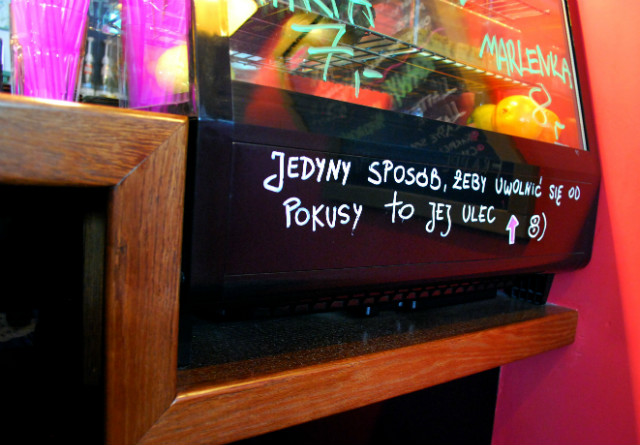 7,-
MARLENKA
8,-
JEDYNY SPOSÓB, ŻEBY UWOLNIĆ SIĘ OD
POKUSY TO JEJ ULEC ↑ 8)